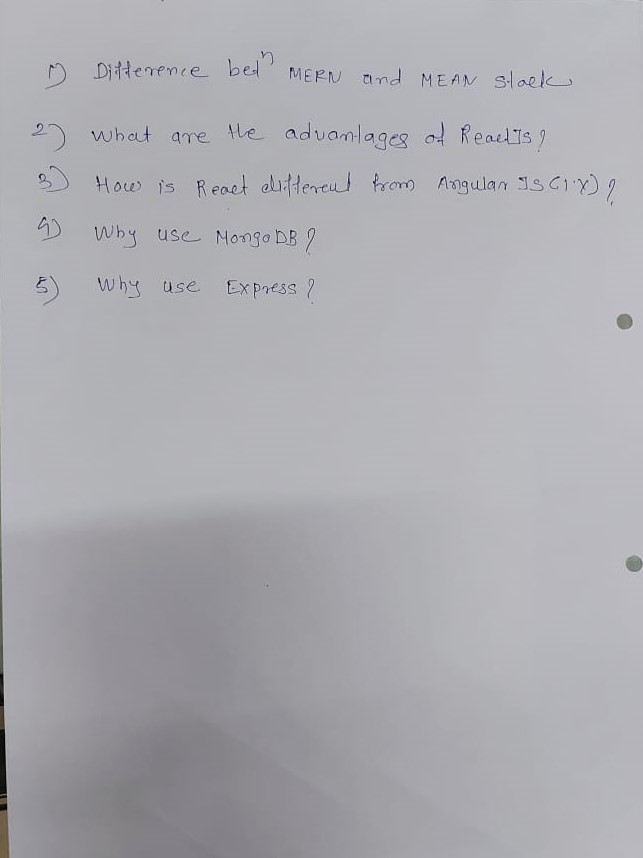 1) Difference betⁿ MERN and MEAN stack
2) What are the advantages of ReactJs?
3) How is React different from Angular JS (1.x)?
4) Why use MongoDB?
5) Why use Express?